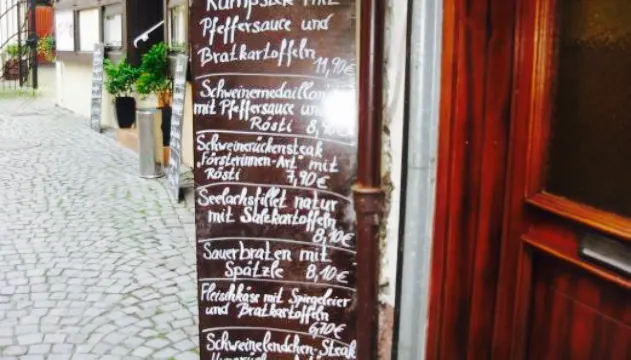 Rumpsteak mit
Pfeffersauce und
Bratkartoffeln
11,90€
Schweinemedaillons
mit Pfeffersauce und
Rösti 8,
Schweinerückensteak
"Försterinnen-Art" mit
Rösti 7,90€
Seelachsfilet natur
mit Salzkartoffeln
8,10€
Sauerbraten mit
Spätzle 8,10€
Fleischkäse mit Spiegeleier
und Bratkartoffeln
6,70€
Schweinelendchen-Steak